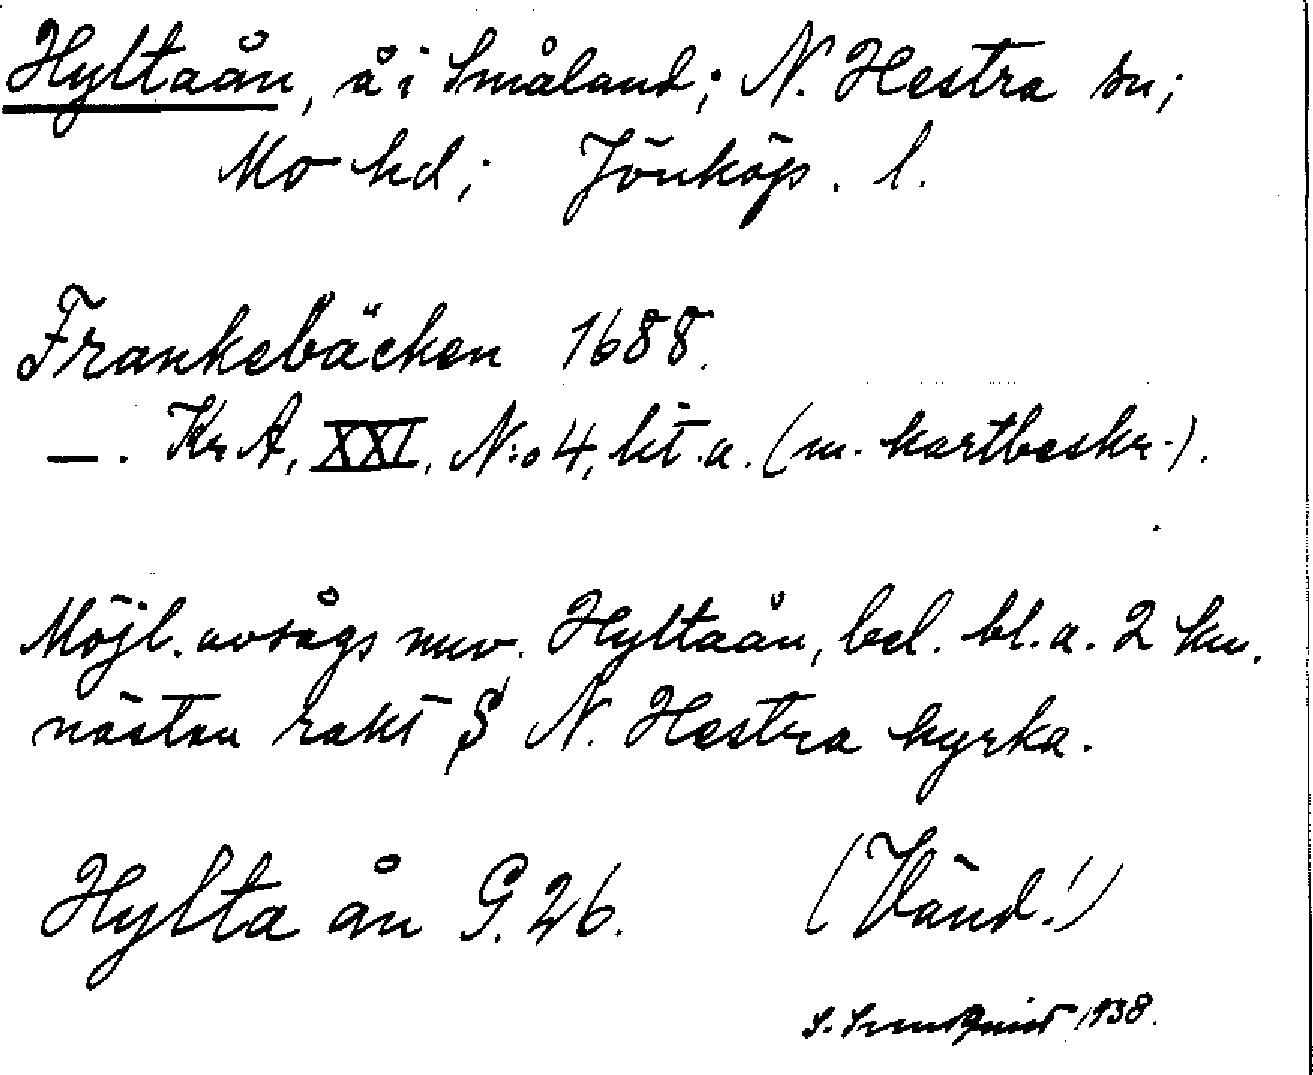 Hyltaån, å i Småland; N. Hestra sn;
Mo hd; Jönköp. l.
Frankebäcken 1688.
—. Kr A, XXI, N:o 4, lit. a. (m. kartbeskr.).
Möjl. avsågs nuv. Hyltaån, bel. bl. a. 2 km.
nästan rakt S N. Hestra kyrka.
Hylta ån G. 26. (Vänd!)
S. 1938.